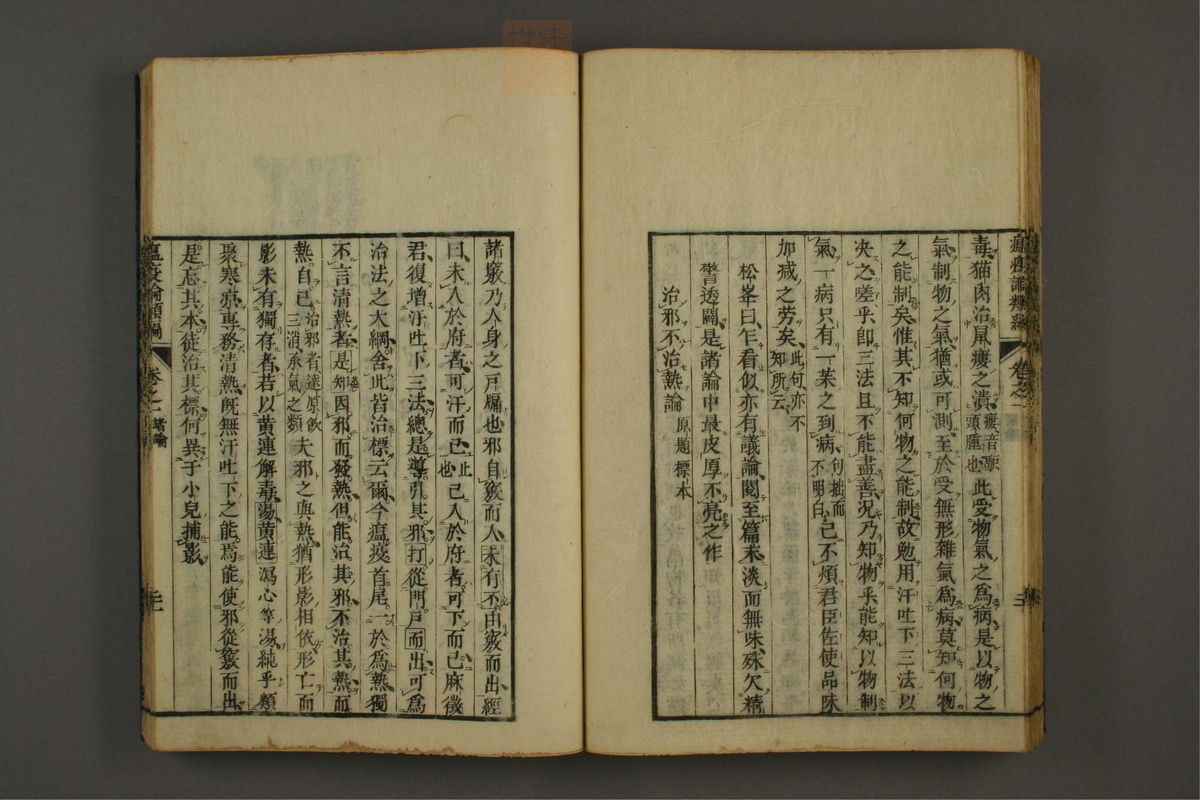 瘟疫論類編 卷之一
毒猫肉治鼠瘻之潰瘻音頭腫也此受物氣之爲病是以物之
氣制物之氣猶或可測至於受無形雜氣爲病莫知何物
之能制矣惟其不知何物之能制故勉用汗吐下三法以
夬之嗟乎即三法且不能盡善况乃知物乎能知以物制
氣一病只有一藥之到病句拙而不明白已不煩君臣佐使品味
加减之勞矣此句亦不知所云
松峯曰乍看似亦有議論閱至篇末淡而無味殊欠精
警透闢是諸論中最皮厚不亮之作
治邪不治熱論原題標本
諸竅乃人身之戸牖也邪自竅而入未有不由竅而出經
曰未入於府者可汗而已止也已入於府者可下而已麻徵
君復增汗吐下三法總是導引其邪打從門戸而出可爲
治法之大綱舍此皆治標云爾今瘟疫首尾一於爲熱獨
不言清熱者是知因邪而發熱但能治其邪不治其熱而
熱自已治邪者達原飲三消承氣之類夫邪之與熱猶形影相依形亡而
影未有獨存者若以黄連解毒湯黄連瀉心等湯純乎類
聚寒凉專務清熱旣無汗吐下之能焉能使邪從竅而出
是忘其本徒治其標何異于小兒捕影
瘟疫論類編 卷之一 諸論